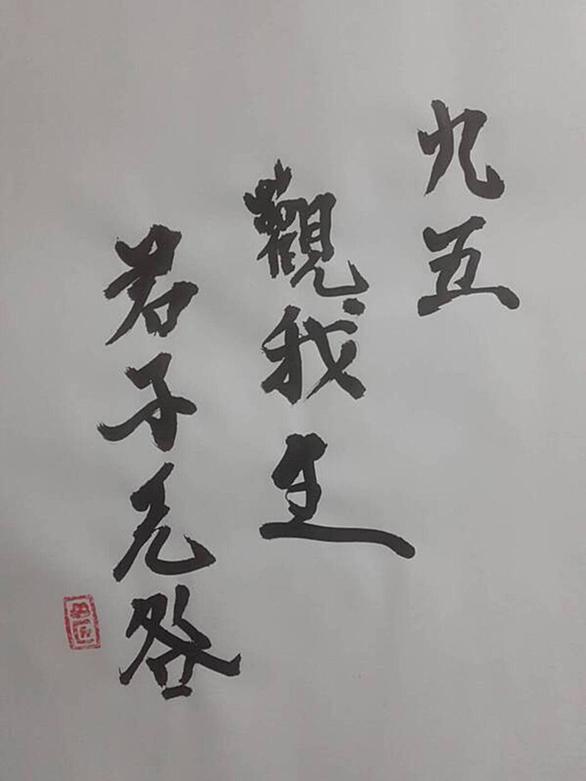 九五
觀我生
君子无咎